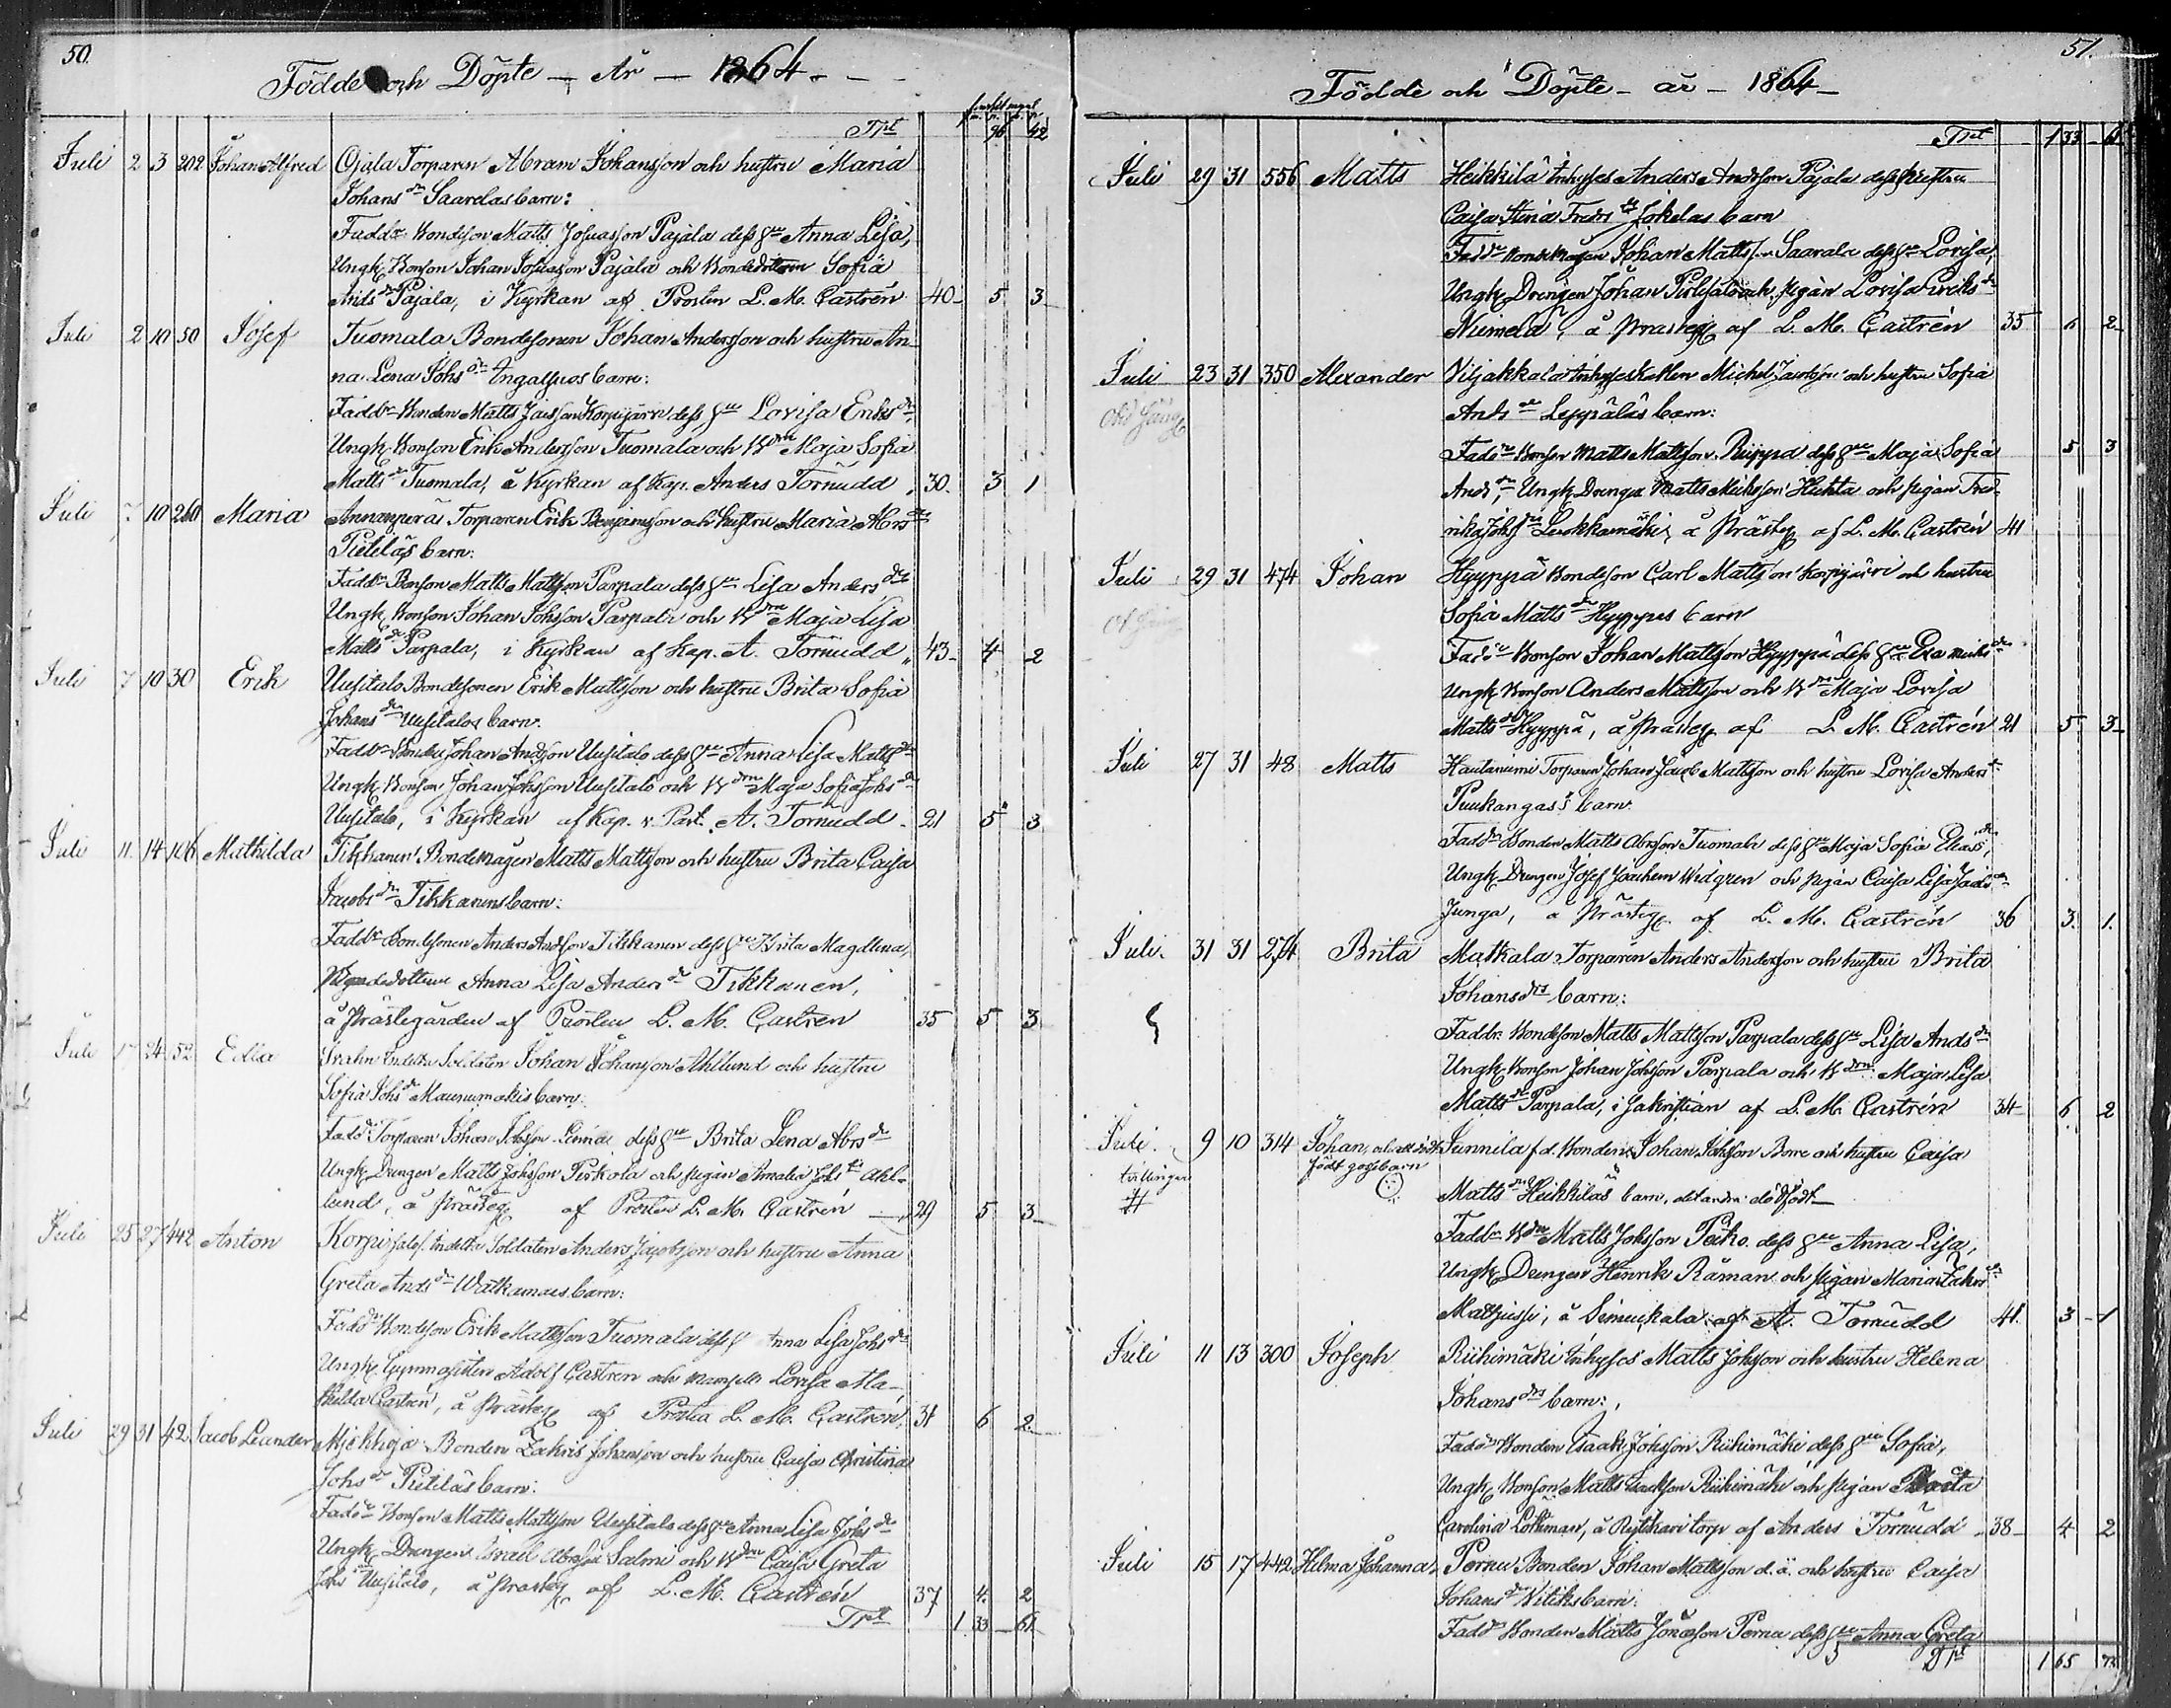 50.
Födde och Döpte - År - 1864 - - -
Trt 96 42
Juli 2 3 202 Johan Alfred Ojala Torparen Abram Johansson och hustru Maria
Johans dr Saarelas barn:
Faddr Bondeson Matts Josuasson Pajala dess hu Anna Lisa,
Ungk. Bonson Johan Josuasson Pajala och Bondedottren Sofia
Ands dr Pajala, i Kyrkan af Prosten L. M. Castrén 40 5 3
Juli 2 10 50 Josef Tuomala Bondesonen Johan Andersson och hustru An-
na Lena Johs dr Ingalsuos barn:
Faddr Bonden Matts Korpijärvi dess hu Lovisa Eriks dr
Ungk. Bonson Erik Andersson Tuomala och B drn Maja Sofia
Matts dr Tuomala, i Kyrkan af Kap. Anders Tornudd 30. 3 1
Juli 10 260 Maria Annanperä Torparen Erik Benjamsson och hustru Maria Abrs dr
Pietiläs barn:
Faddr Bonson Matts Mattsson Parpala dess hu Lisa Anders dr
Ungk. Bonson Johan Johsson Parpala och B drn Maja Lisa
Matts dr Parpala, i Kyrkan af Kap. A. Tornudd 43 4 2
Juli 7 10 30 Erik Uusitalo Bondesonen Erik Mattsson och hustru Brita Sofia
Johans dr Uusitalos barn.
Faddr Bonden Johan Andsson Uusitalo dess hu Anna Lisa Matts dr
Ungk. Bonson Johan Johsson Uusitalo och B drn Maja Sofia Johs dr
Uusitalo, i Kyrkan af Kap. v. Past. A. Tornudd 21 5 3
Juli 11 14 106 Mathilda Tikkanen Bondemågen Matts Mattsson och hustru Brita Caisa
Jacobs dr Tikkanens barn:
Faddr Bondesonen Anders Andsson Tikkanen dess hu Brita Magdlena,
Bondedottren Anna Lisa Anders dr Tikkanen,
å Prästegården af Prosten L. M. Castrén 35 5 3
Juli 24 52 Edla Indelta Soldaten Johan Johansson Ahllund och hustru
Sofia Johs dr Maunumäkis barn:
Faddr Torparen Johan Johsson dess hu Brita Lena Abrs dr
Ungk. Drengen Matts Johsson Pirkola och pigan Amalia Johs dr Ahl-
lund, å Prästeg af Prosten L. M. Castrén 29 5 3
Juli 25 27 442 Anton Korpisalo Indelta Soldaten Anders Jacobsson och hustru Anna
Greta Ands dr Watkamaas barn:
Faddr Bondeson Erik Mattsson Tuomala dess Anna Lisa Johs dr
Ungk. Gymnasisten Adolf Castrén och Mamsell Lovisa Ma-
thilda Castrén, å Prästeg af Prosten L. M. Castrén 34 6 2
Juli 29 31 42. Jacob Leander Bonden Zakris Johansson och hustru Caisa Christina
Johs dr Pietiläs barn:
Faddr Bonson Matts Mattsson Uusitalo dess hu Anna Lisa Johs dr
Ungk. Drengen Israel Abrsson Salmi och B drn Caisa Greta
Johs dr Uusitalo, å Prästeg af L. M. Castrén 37 4. 2
Trt 1 33 61
51.
Födde och Döpte - år - 1864 -
Trt 1 33 61
Juli 29 31 556 Matts Heikkilä Inhyses Anders Andsson Pajala dess hustru
Caisa Stina Fredrs dr Jokelas barn
Faddr Bondemågen Johan Mattsson Saarela dess hu Lovisa,
Ungk. Drengen Johan och pigan Lovisa Eriks dr
Niemelä, å Prästeg af L. M. Castrén 35 6 2
Juli 23 31 350 Alexander Viljakkala Inhyses Karlen Michel Jacobsson och hustru Sofia
Ands dr Leppäläs barn:
Faddr Bonson Matts Mattsson Riippa dess hu Maja Sofia 5 3
Ands dr Ungk. Drengen Matts Huhta och pigan Fred-
rika Johs dr Luokkamäki, å Prästeg af L. M. Castrén 41
Juli 29 31 474 Johan Hyyppä Bondeson Carl Mattsson Korpijärvi och hustru
Sofia Matts dr Hyyppäs barn
Faddr Bonson Johan Mattsson Hyyppä dess hu Eva
Ungk. Bonson Anders Mattsson och B drn Maja Lovisa
Matts dr Hyyppä, å Prästeg af L. M. Castrén 21 5 3
Juli 27 31 48 Matts Hautaniemi Torparen Johan Jacob Mattsson och hustru Lovisa Anders dr
Puukangas's barn.
Faddr Bonden Matts Abrsson Tuomala dess hu Maja Sofia Elias dr,
Ungk. Drengen Josef Joachim Widgren och pigan Caisa Lisa Jacobs dr
Junga, å Prästeg af L. M. Castrén 36 3. 1.
Juli. 31 31 274 Brita Matkala Torparen Anders Andersson och hustru Brita
Johansdrs barn:
Faddr. Bondeson Matts Mattsson Parpala dess hu Lisa Ands dr
Ungk. Bonson Johan Johsson Parpala och B drn Maja Lisa
Matts dr Parpala, i Sakristian af L. M. Castrén 34 6 2
Juli. 9 10 314 Johan, och ett dödt Junnila f.d. Bonden Johan Johsson och hustru Caisa
tvillingar födt gossebarn
Matts dr Heikkiläs barn, det andra dödfödt
Faddr B Matts Johsson dess hu Anna Lisa,
Ungk. Drengen Henrik Råman och pigan Maria Zakris dr
å af A. Tornudd 41. 3 1
Juli 11 13 300 Joseph Riihimäki Inhyses Matts Johsson och hustru Helena
Johansdrs barn:
Faddr Bonden Isaak Johsson Riihimäki dess hu Sofia,
Ungk. Bonson Matts Isaksson Riihimäki och pigan
Carolina å torp af Anders Tornudd 38 4 2
Juli 15 17 442 Hilma Johanna Pernu Bonden Johan Mattsson d. ä. och hustru Caisa
Johans dr Nitiks barn:
Faddr Bonden Matts Jonasson Pernu dess hu Anna Greta
Trt 1 65 72